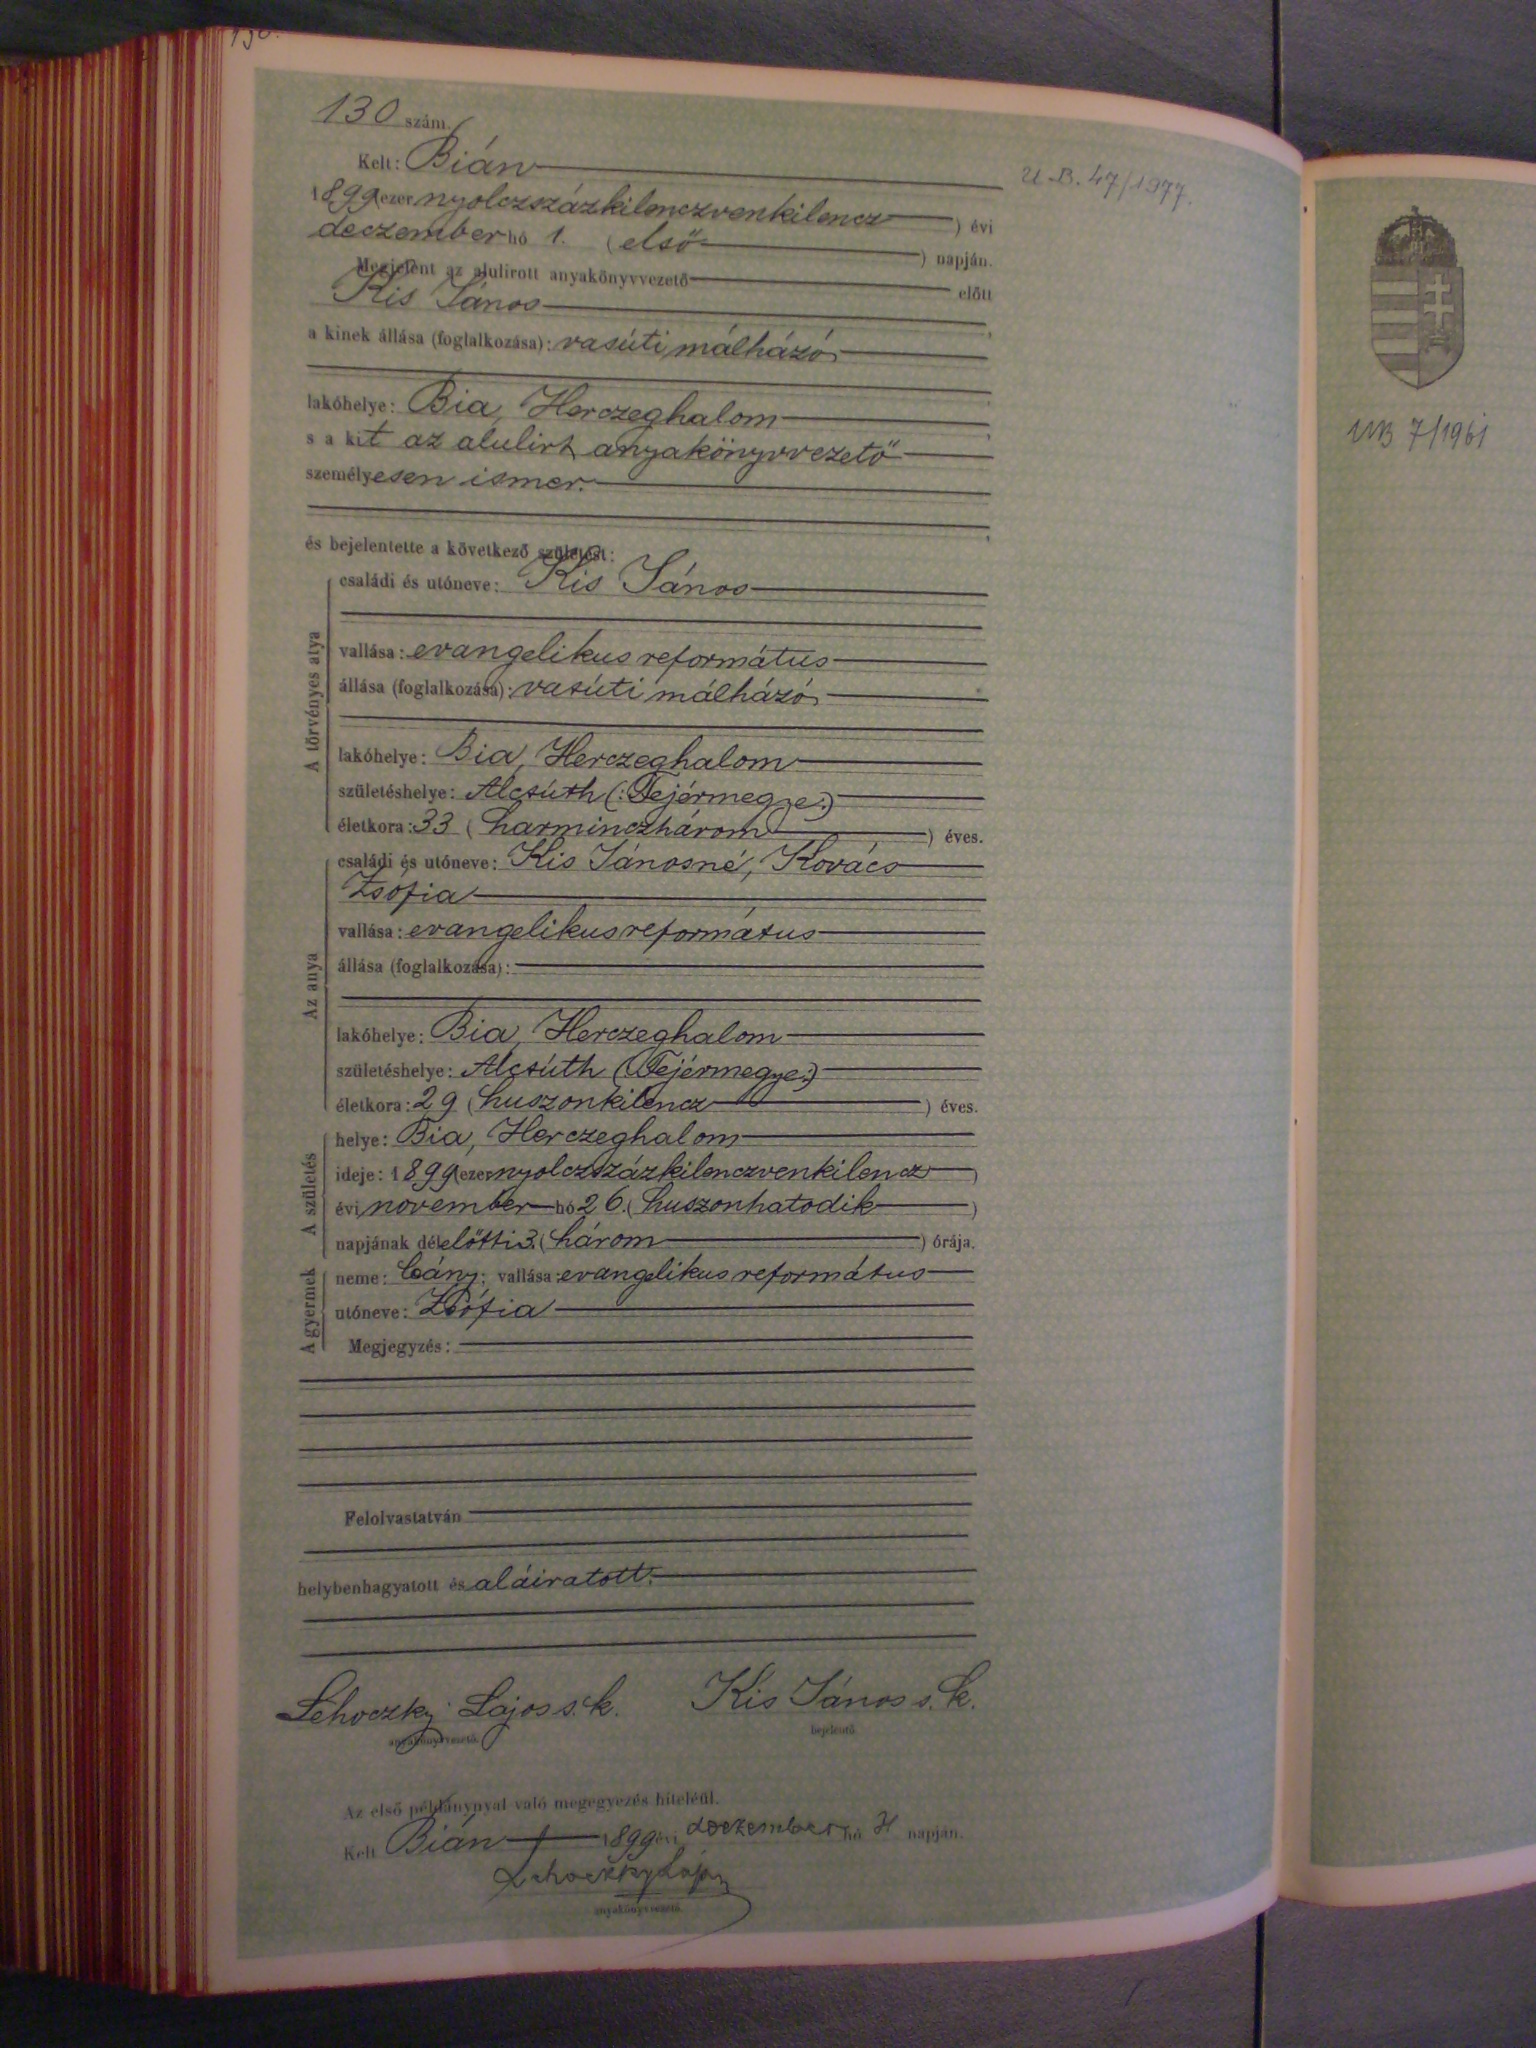 130 szám.
Kelt: Bián
U.B. 47/1977.
1899 (ezer nyolczszázkilenczvenkilencz) évi
deczember hó 1. (első) napján.
Megjelent az alulirott anyakönyvvezető előtt
Kis János
a kinek állása (foglalkozása): vasúti málházó,
lakóhelye: Bia, Herczeghalom
s a kit az alulirt anyakönyvvezető
személyesen ismer.
és bejelentette a következő születést:
A törvényes atya
családi és utóneve: Kis János
vallása: evangelikus református
állása (foglalkozása): vasúti málházó,
lakóhelye: Bia, Herczeghalom
születéshelye: Alcsúth (:Fejérmegye:)
életkora: 33 (harminczhárom) éves.
Az anya
családi és utóneve: Kis Jánosné, Kovács
Zsófia
vallása: evangelikus református
állása (foglalkozása):
lakóhelye: Bia, Herczeghalom
születéshelye: Alcsúth (:Fejérmegye:)
életkora: 29 (huszonkilencz) éves.
A születés
helye: Bia, Herczeghalom
ideje: 1899 (ezer nyolczszázkilenczvenkilencz)
évi november hó 26. (huszonhatodik)
napjának délelőtti 3. (három) órája.
A gyermek
neme: leány; vallása: evangelikus református
utóneve: Zsófia
Megjegyzés:
Felolvastatván
helybenhagyatott és aláiratott.
Lehoczky Lajos s. k. Kis János s. k.
anyakönyvvezető. bejelentő.
Az első példánynyal való megegyezés hiteléül.
Kelt Bián 1899 évi deczember hó napján.
Lehoczky Lajos
anyakönyvvezető.
UB 7/1961